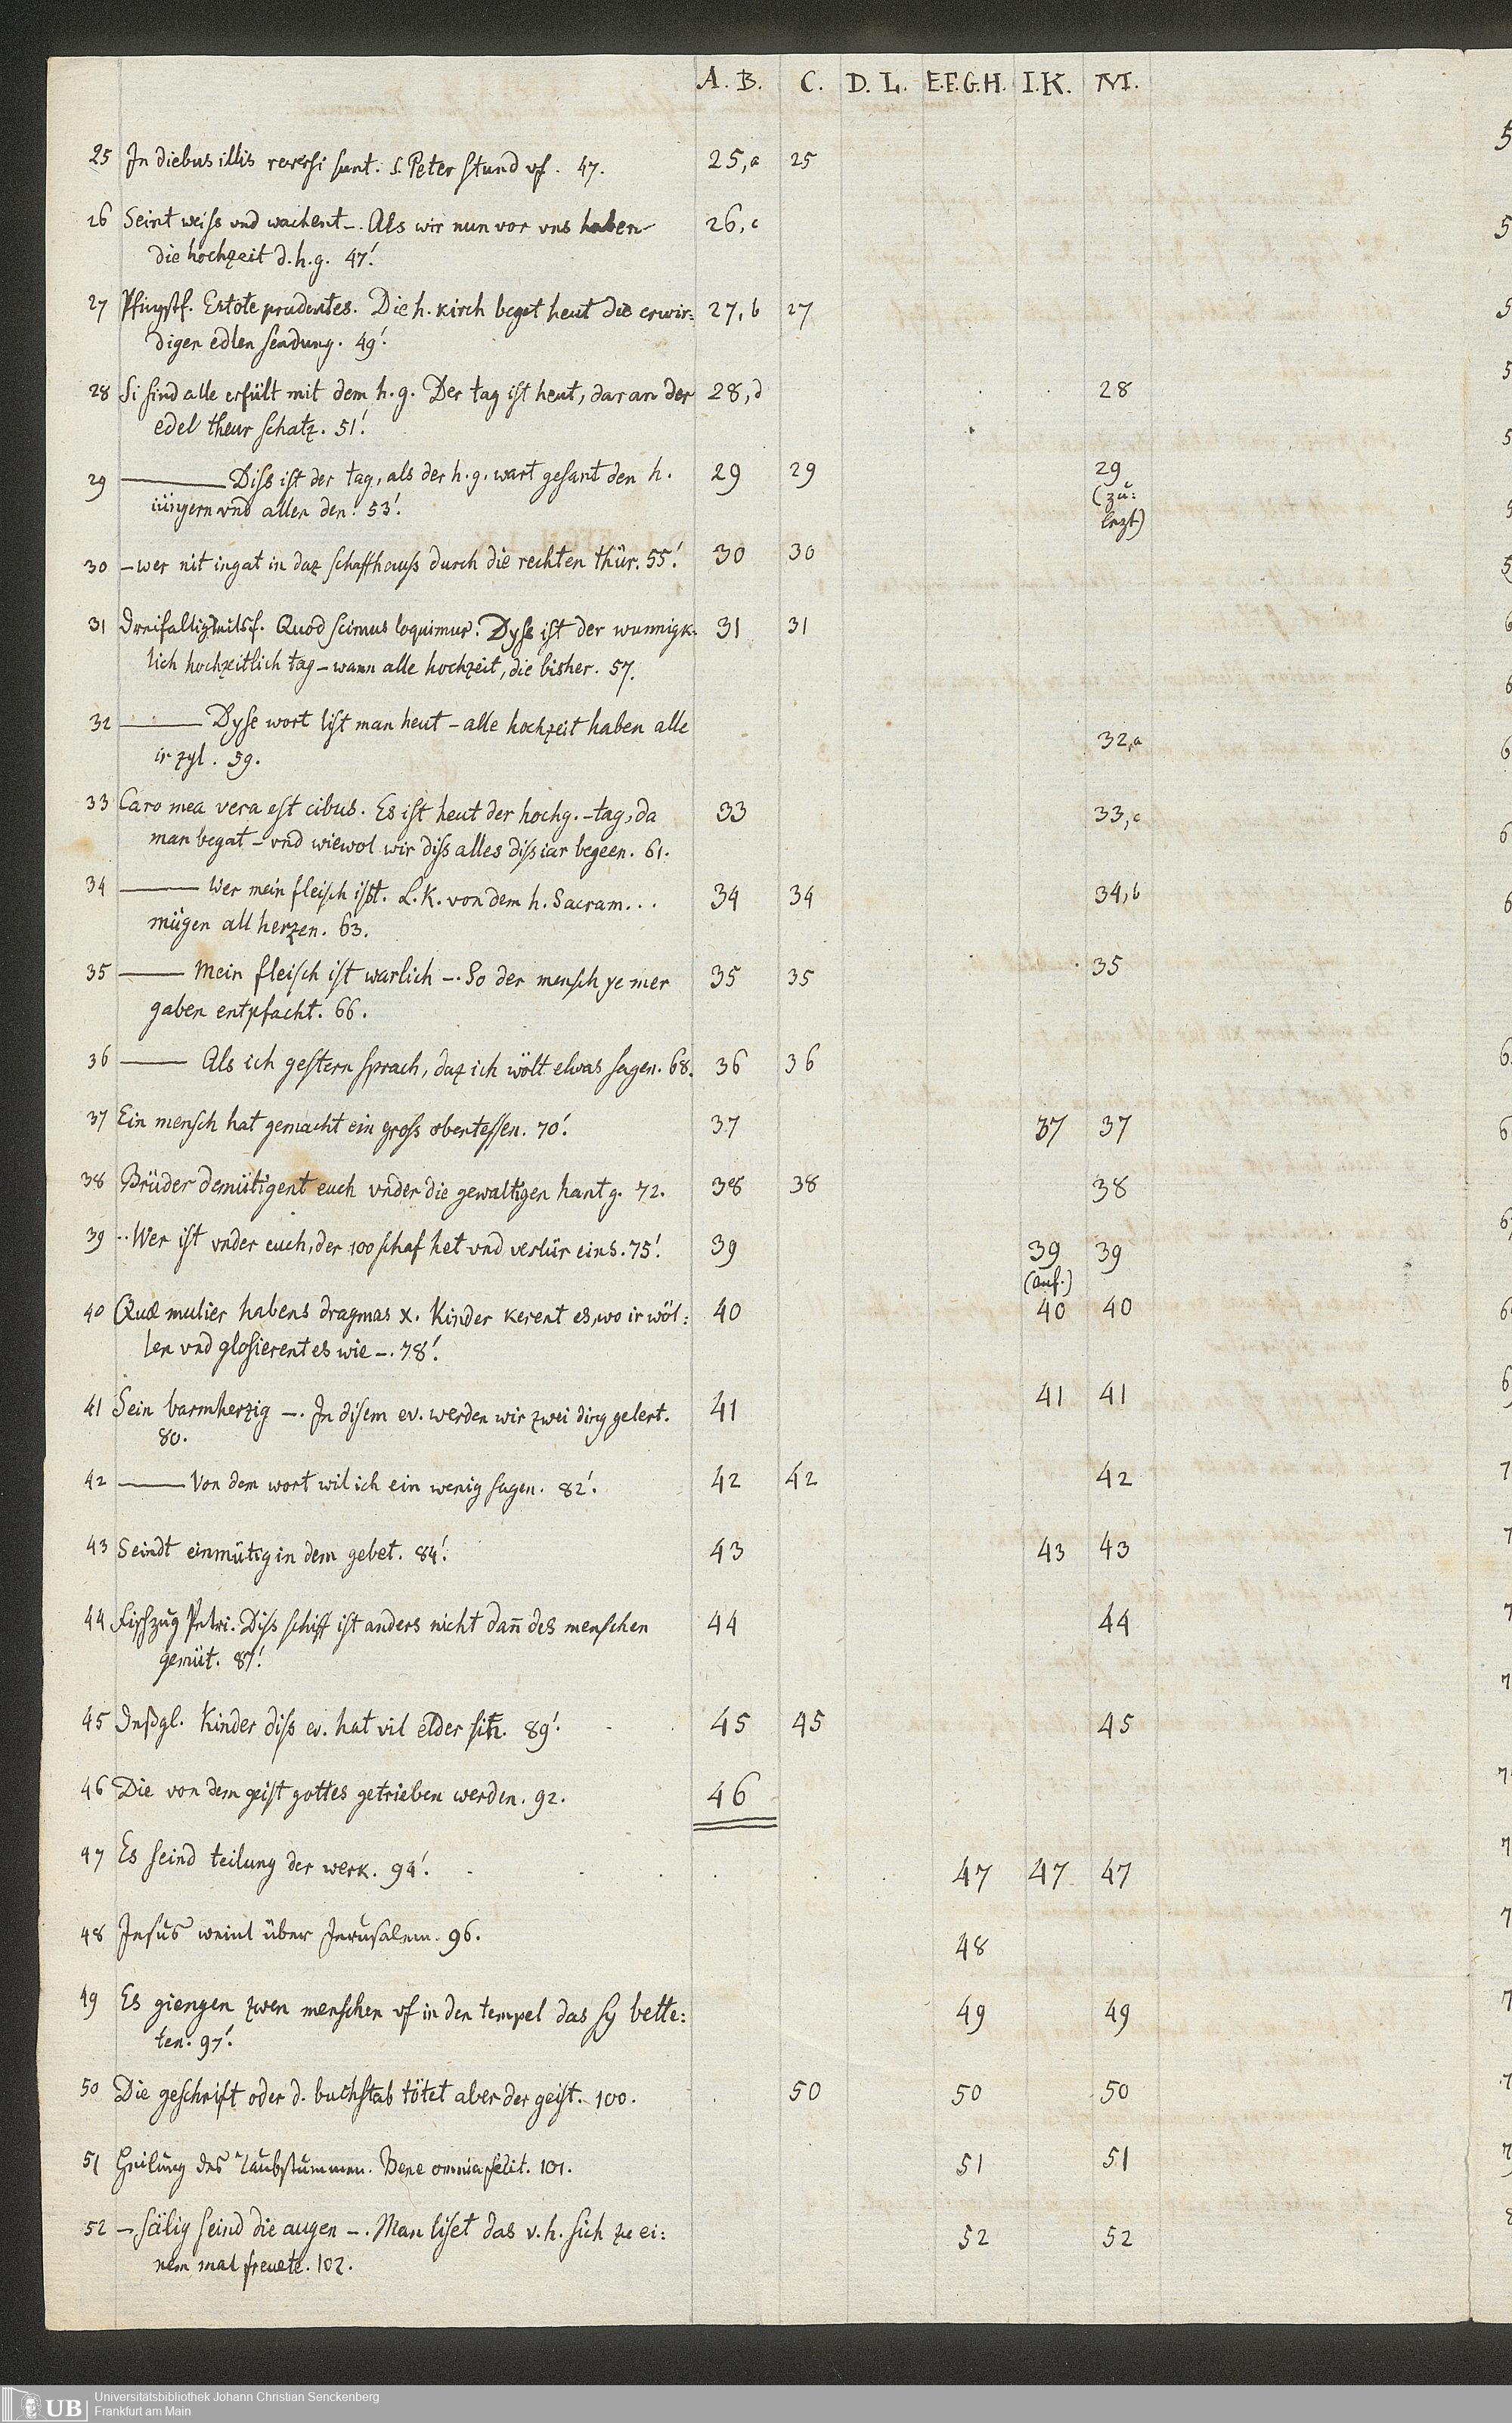 A. B. C. D. L. E.F.G.H. I.K. M.
25 In diebus illis reversi sunt. s. Peter stund vf. 47. 25,a 25
26 Seint weiss vnd wachent –. Als wir nun vor vns haben 26,c
die hochzeit d.h.g. 47!
27 Pfingstf. Estote prudentes. Die h. kirch beget heut die erwir: 27,b 27
digen edlen sendung. 49!
28 Si sind alle erfült mit dem h.g. Der tag ist heut, daran der 28,d 28
edel theur schatz. 51!
29 — Diss ist der tag, als der h.g. wart gesant den h. 29 29 29
iüngern vnd allen den! 53! (zu:
lezt)
30 – wer nit ingat in daz schaffhauss durch die rechten thür. 55! 30 30
31 Dreifaltigkeitsf. Quod scimus loquimur. Dyse ist der wunnigk: 31 31
lich hochzeitlich tag – wann alle hochzeit, die bisher. 57.
32 — Dyse wort list man heut – alle hochzeit haben alle
ir zyl. 59. 32,a
33 Caro mea vera est cibus. Es ist heut der hochg. – tag, da 33 33,c
man begat – vnd wiewol wir diss alles diss iar begeen. 61.
34 — Wer mein fleisch isst. L.K. von dem h. Sacram... 34 34 34,b
mügen all herzen. 63.
35 — Mein fleisch ist warlich –. So der mensch ye mer 35 35 35
gaben entpfacht. 66.
36 — Als ich gestern sprach, daz ich wölt etwas sagen. 68. 36 36
37 Ein mensch hat gemacht ein gross obentessen. 70! 37 37 37
38 Brüder demütigent euch vnder die gewaltigen hant g. 72. 38 38 38
39 .. Wer ist vnder euch, der 100 schaf het vnd verlür eins. 75! 39 39 39
(anf.)
40 Quæ mulier habens dragmas X. Kinder kerent es, wo ir wöl: 40 40 40
len vnd glosierent es wie –. 78!
41 Sein barmherzig –. In disem ev. werden wir zwei ding gelert. 41 41 41
80.
42 — Von dem wort wil ich ein wenig sagen. 82! 42 42 42
43 Seindt einmütig in dem gebet. 84! 43 43 43
44 Fischzug Petri. Diss schiff ist anders nicht dann des menschen 44 44
gemüt. 87!
45 Desgl. Kinder diss ev. hat vil edler sin. 89! 45 45 45
46 Die von dem geist gottes getrieben werden. 92. 46
47 Es seind teilung der werk. 94! 47 47 47
48 Jesus weint über Jerusalem. 96. 48
49 Es giengen zwen menschen vf in den tempel das sy bette: 49 49
ten. 97!
50 Die geschrift oder d. buchstab tötet aber der geist. 100. 50 50 50
51 Heilung des Taubstummen. Bene omnia fecit. 101. 51 51
52 – sälig seind die augen –. Man liset das v.h. sich zu ei: 52 52
nem mal freuete. 102.
UB Universitätsbibliothek Johann Christian Senckenberg
Frankfurt am Main